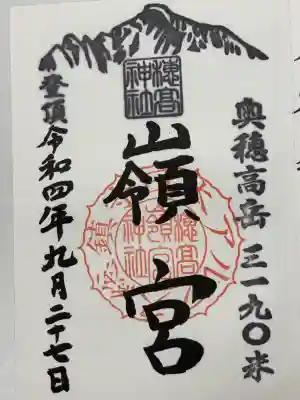 奥穂高岳 三一九〇米
穂高
神社
嶺宮
登頂 令和四年九月二十七日